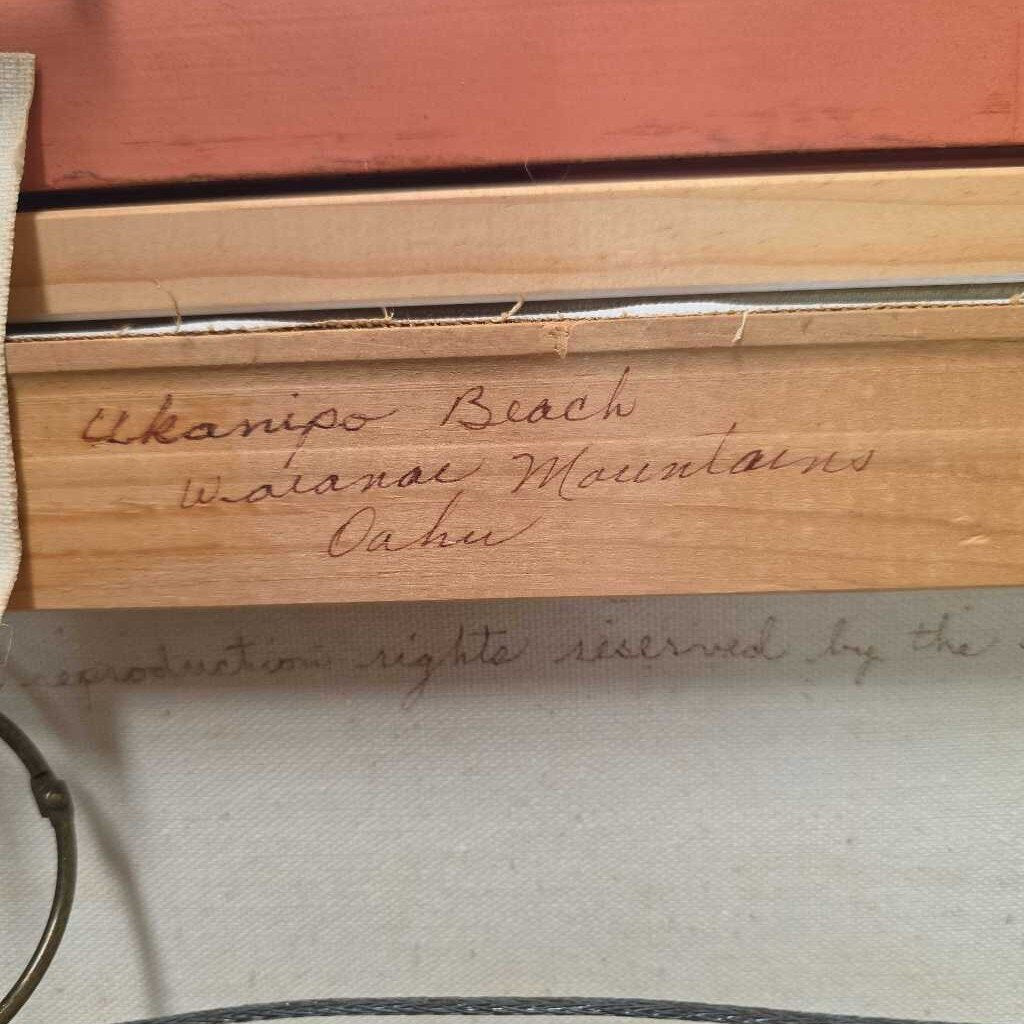 Ukanipo Beach
Waianae Mountains
Oahu
reproduction rights reserved by the